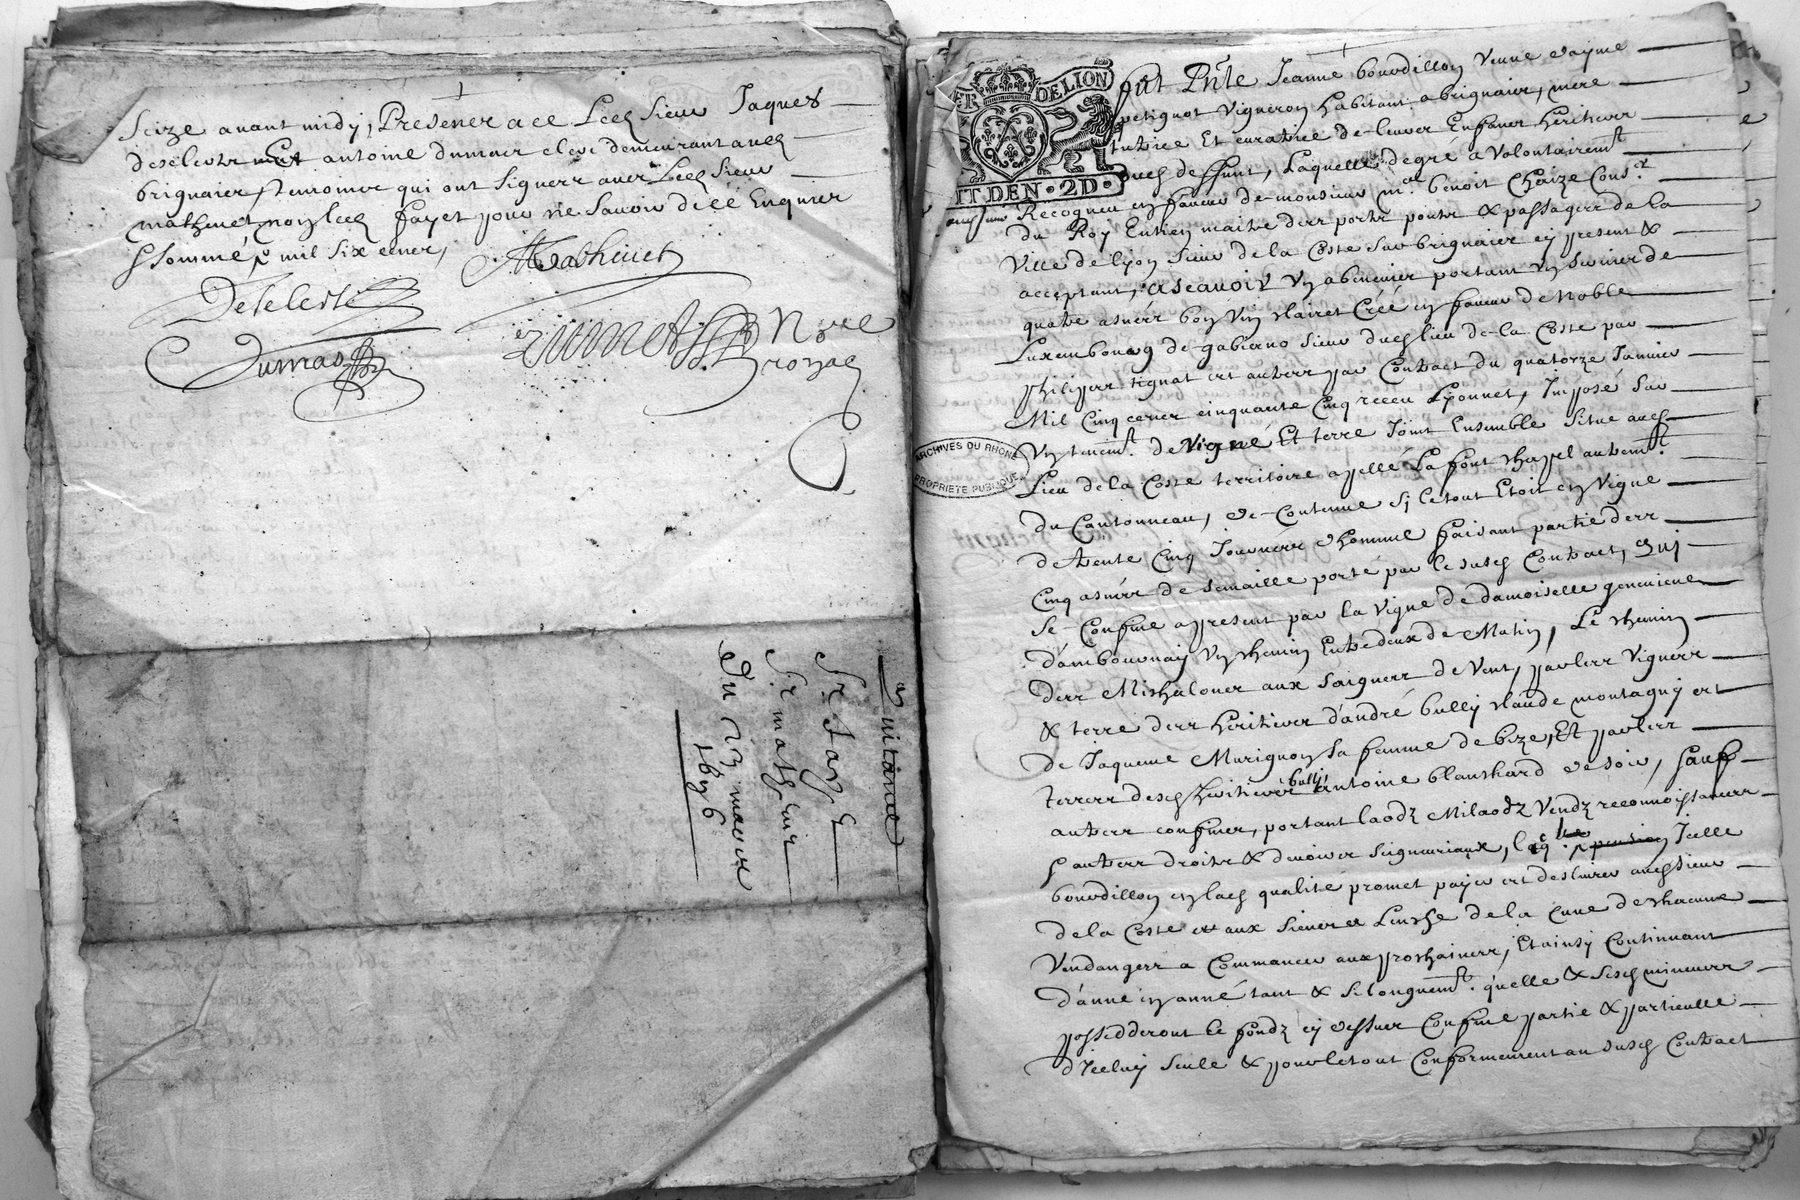 Seize avant midy, Presener a ce Led Sieur Jaques
deseleste Et antoine dumas clerc demeurant aud
brignaier, temoiner qui ont Signerr avec Led Sieur
mathinet non led fayet pour ne Scavoir de ce Enquier
& Sommé, mil six cener,
Mathinet
Deseleste
Dumas
No.re
royal
quitance
Sr fayet
Sr mathinet
Du 23 marer
1696
DE LION
ER
IT DEN · 2D ·
fut Pnte Jeanne bourdillon Veuve d'ayme
petignot Vigneron habitant a brignaier, mere
tutrice Et curatrice de leurer Enfaner heritierer
dud deffunt, Laquelle degré a Volontairemt
Recogneu en faveur de monsieur me benoit Chaize Conser
du Roy Entien maitre derr portr pontr & passagerr de la
Ville de lyon Sieur de la Coste sur brignaier cy present &
acceptant, ascavoir Un abenevier portant Un Servier de
quatre asnerr bon Vin clairet Créé en faveur de Noble
Luxembourg de gabierno Sieur dud lieu de la Coste par
Philipperr tignat et auterr par Contract du quatorze Janvier
Mil Cinq cener cinquante Cinq receu Lyonnet, Imposé Sur
Un tenemt de Vigne Et terre Joint Ensemble Situe aud
Lieu de la Coste territoire apellé La font chapel autremt
du Cantonneau, de Contenue Si le tout Etoit en Vigne
de trente Cinq Journerr d'homme faisant partie derr
Cinq asnerr de Semaille porté par le susd Contract, qui
Se Confine a present par la Vigne de damoiselle genevieve
d'ambournay Un chemin Entredeux de Matin, Le chemin
derr Mishaloner aux Saignerr de Vent, par lerr Vignerr
& terre derr heritierer d'andré bully claude montagny et
de Jaqueme Murignon Sa femme de bize, Et par lerr
terrerr desd heritierer bully antoine blanchard de Soir, Sauf
auterr confiner, portant laodz Milaodz Vendz reconnoissancerr
& auterr droitr & devoirer Seigneuriaux, Icelle
bourdillon en lad qualité promet payer et deslivrer aud Sieur
de la Coste et aux Siener a Lanche de la Cuve de chacune
Vendangerr a Commancer aux prochainerr, Et ainsy Continuant
d'anné en anné tant & Si longuemt. qu'elle & Sesd mineurr
possedderont le fondz cy dessuer Confiné partie & particulle
d'Iceluy Seule & pour le tout Conformement au susd Contract
ARCHIVES DU RHONE
PROPRIETE PUBLIQUE